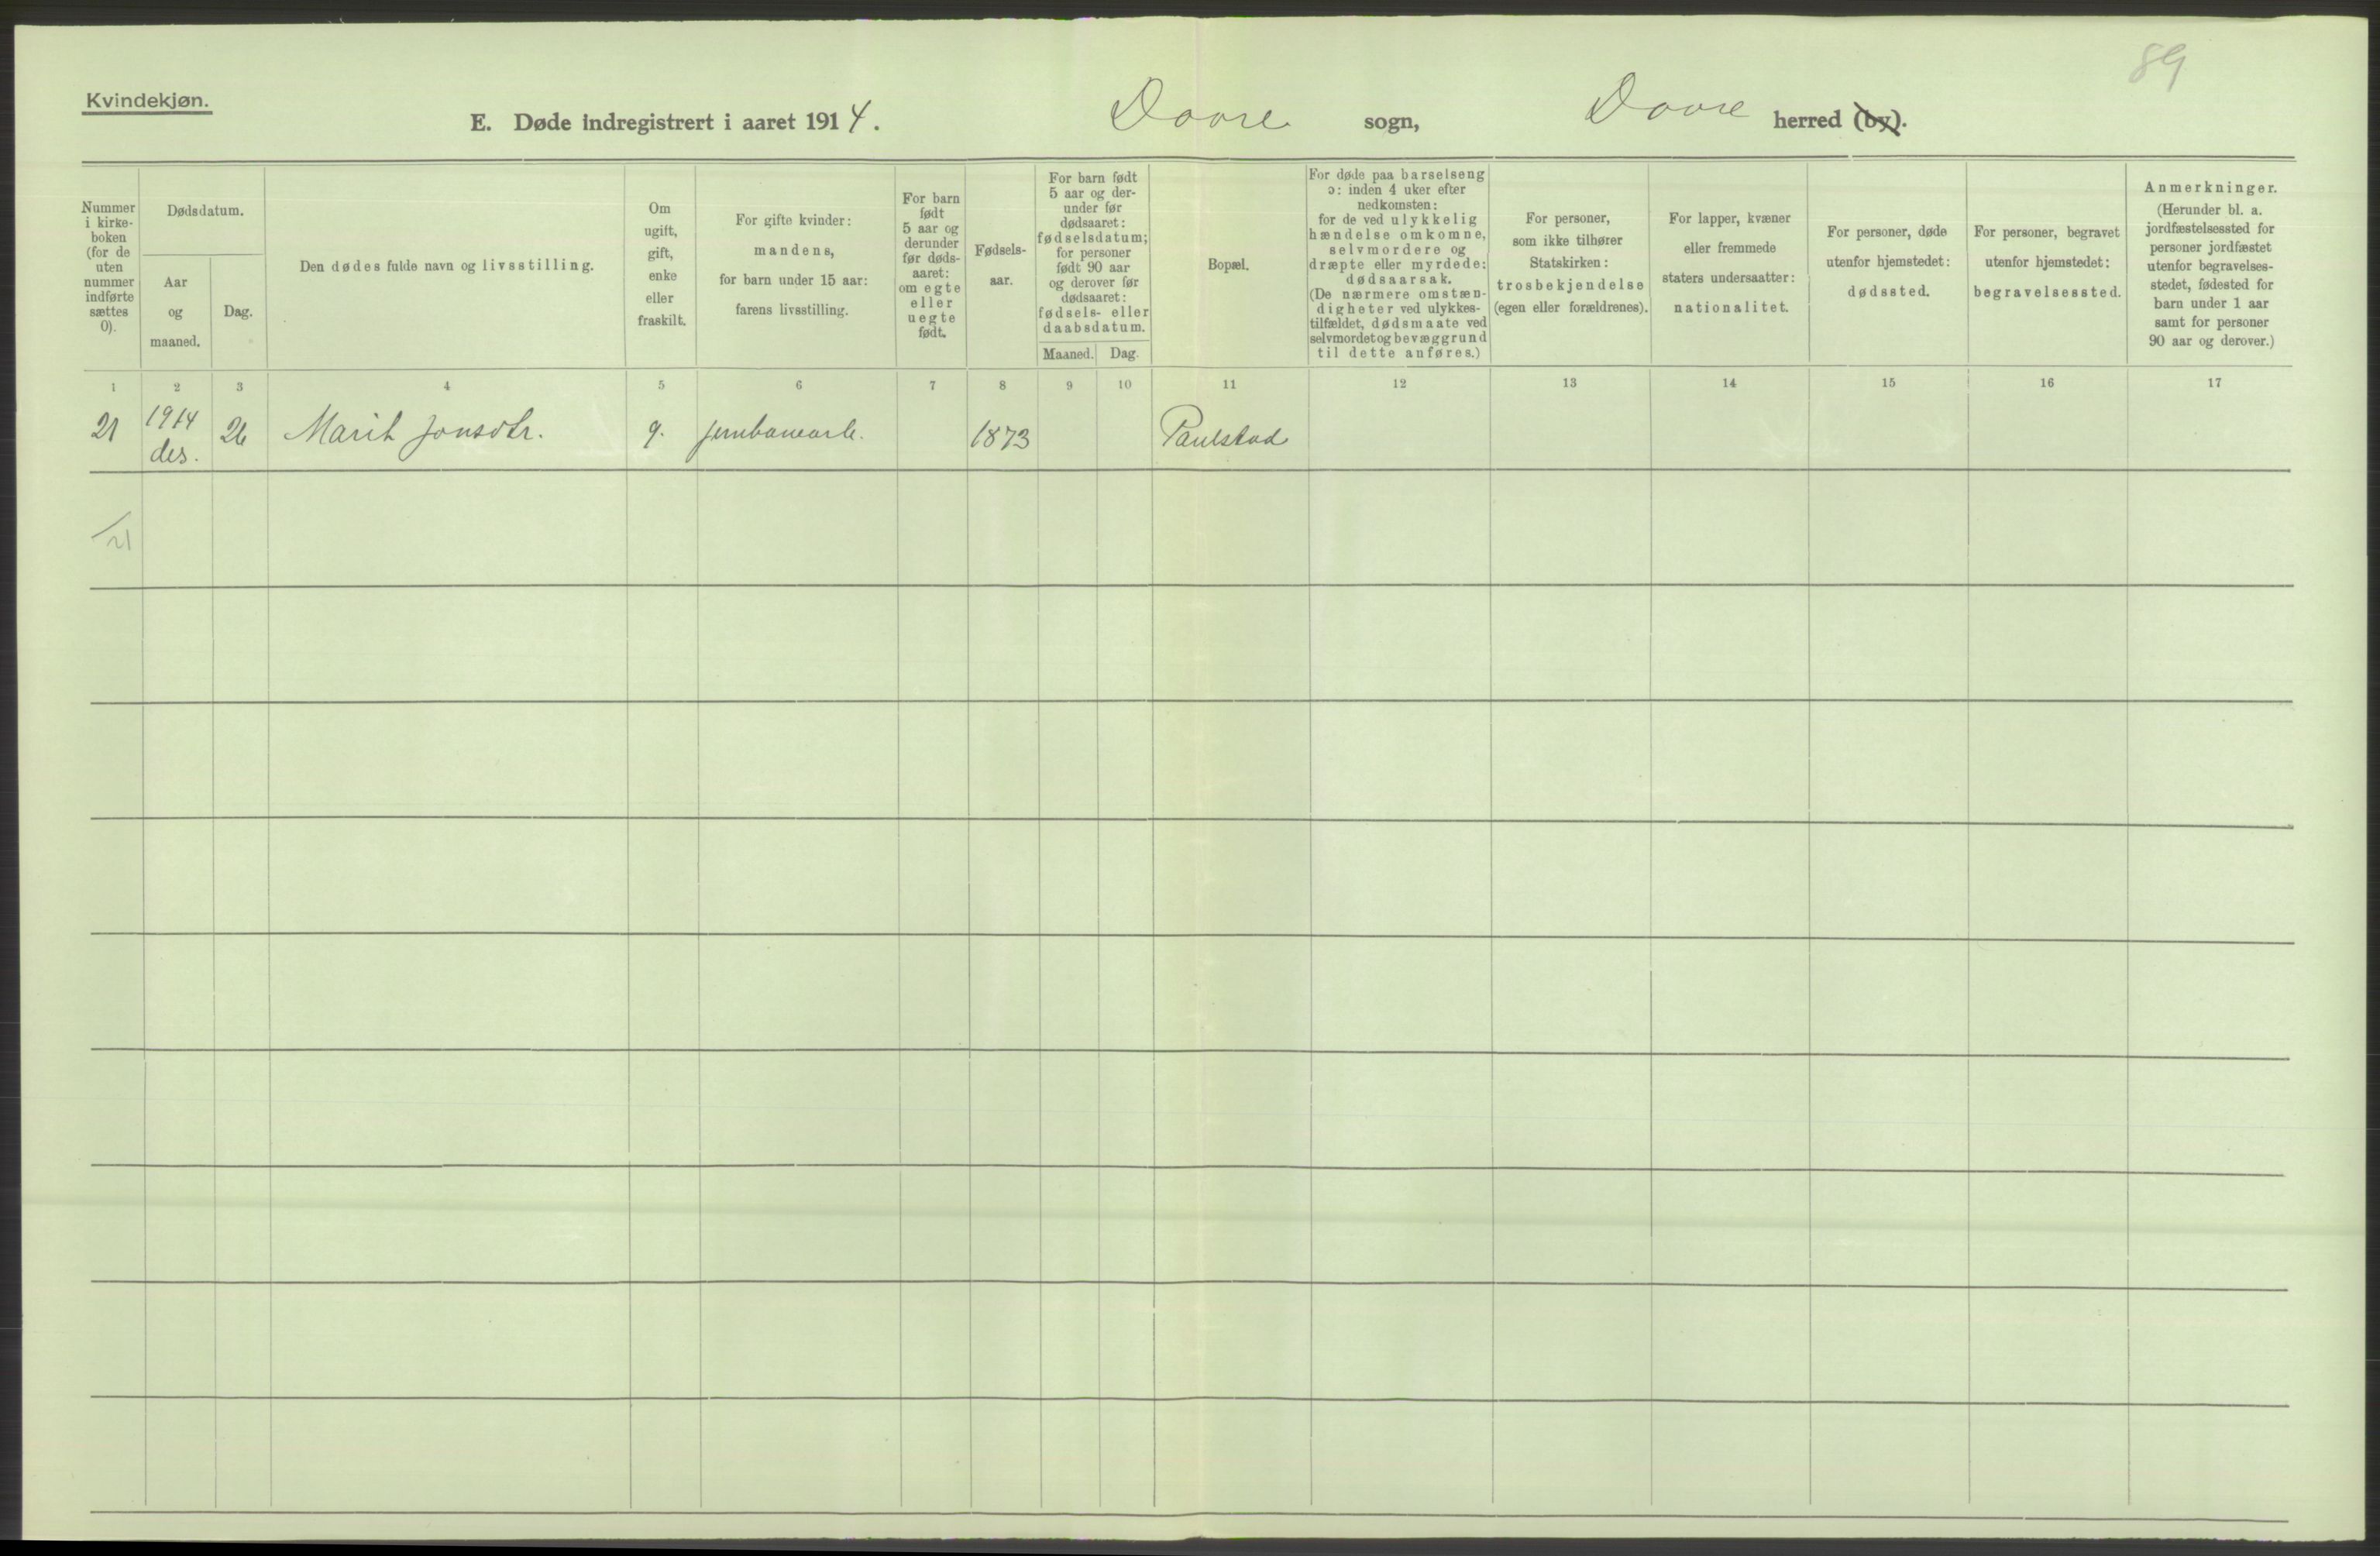 89
Kvindekjøn.
E. Døde indregistrert i aaret 1914. Dovre sogn, Dovre herred (by).
Nummer
i kirke-
boken
(for de
uten
nummer
indførte
sættes
0).
Dødsdatum.
Aar
og
maaned.
Dag.
Den dødes fulde navn og livsstilling.
Om
ugift,
gift,
enke
eller
fraskilt.
For gifte kvinder:
mandens,
for barn under 15 aar:
farens livsstilling.
For barn
født
5 aar og
derunder
før døds-
aaret:
om egte
eller
uegte
født.
Fødsels-
aar.
For barn født
5 aar og der-
under før
dødsaaret:
fødselsdatum;
for personer
født 90 aar
og derover før
dødsaaret:
fødsels- eller
daabsdatum.
Maaned. Dag.
Bopæl.
For døde paa barselseng
ɔ: inden 4 uker efter
nedkomsten:
for de ved ulykkelig
hændelse omkomne,
selvmordere og
dræpte eller myrdede:
dødsaarsak.
(De nærmere omstæn-
digheter ved ulykkes-
tilfældet, dødsmaate ved
selvmordet og bevæggrund
til dette anføres.)
For personer,
som ikke tilhører
Statskirken:
trosbekjendelse
(egen eller forældrenes).
For lapper, kvæner
eller fremmede
staters undersaatter:
nationalitet.
For personer, døde
utenfor hjemstedet:
dødssted.
For personer, begravet
utenfor hjemstedet:
begravelsessted.
Anmerkninger.
(Herunder bl. a.
jordfæstelsessted for
personer jordfæstet
utenfor begravelses-
stedet, fødested for
barn under 1 aar
samt for personer
90 aar og derover.)
1 2 3 4 5 6 7 8 9 10 11 12 13 14 15 16 17
21 1914 des. 26 Marit Jonsdtr. g. jernbanearb. 1873 Paulstad
21